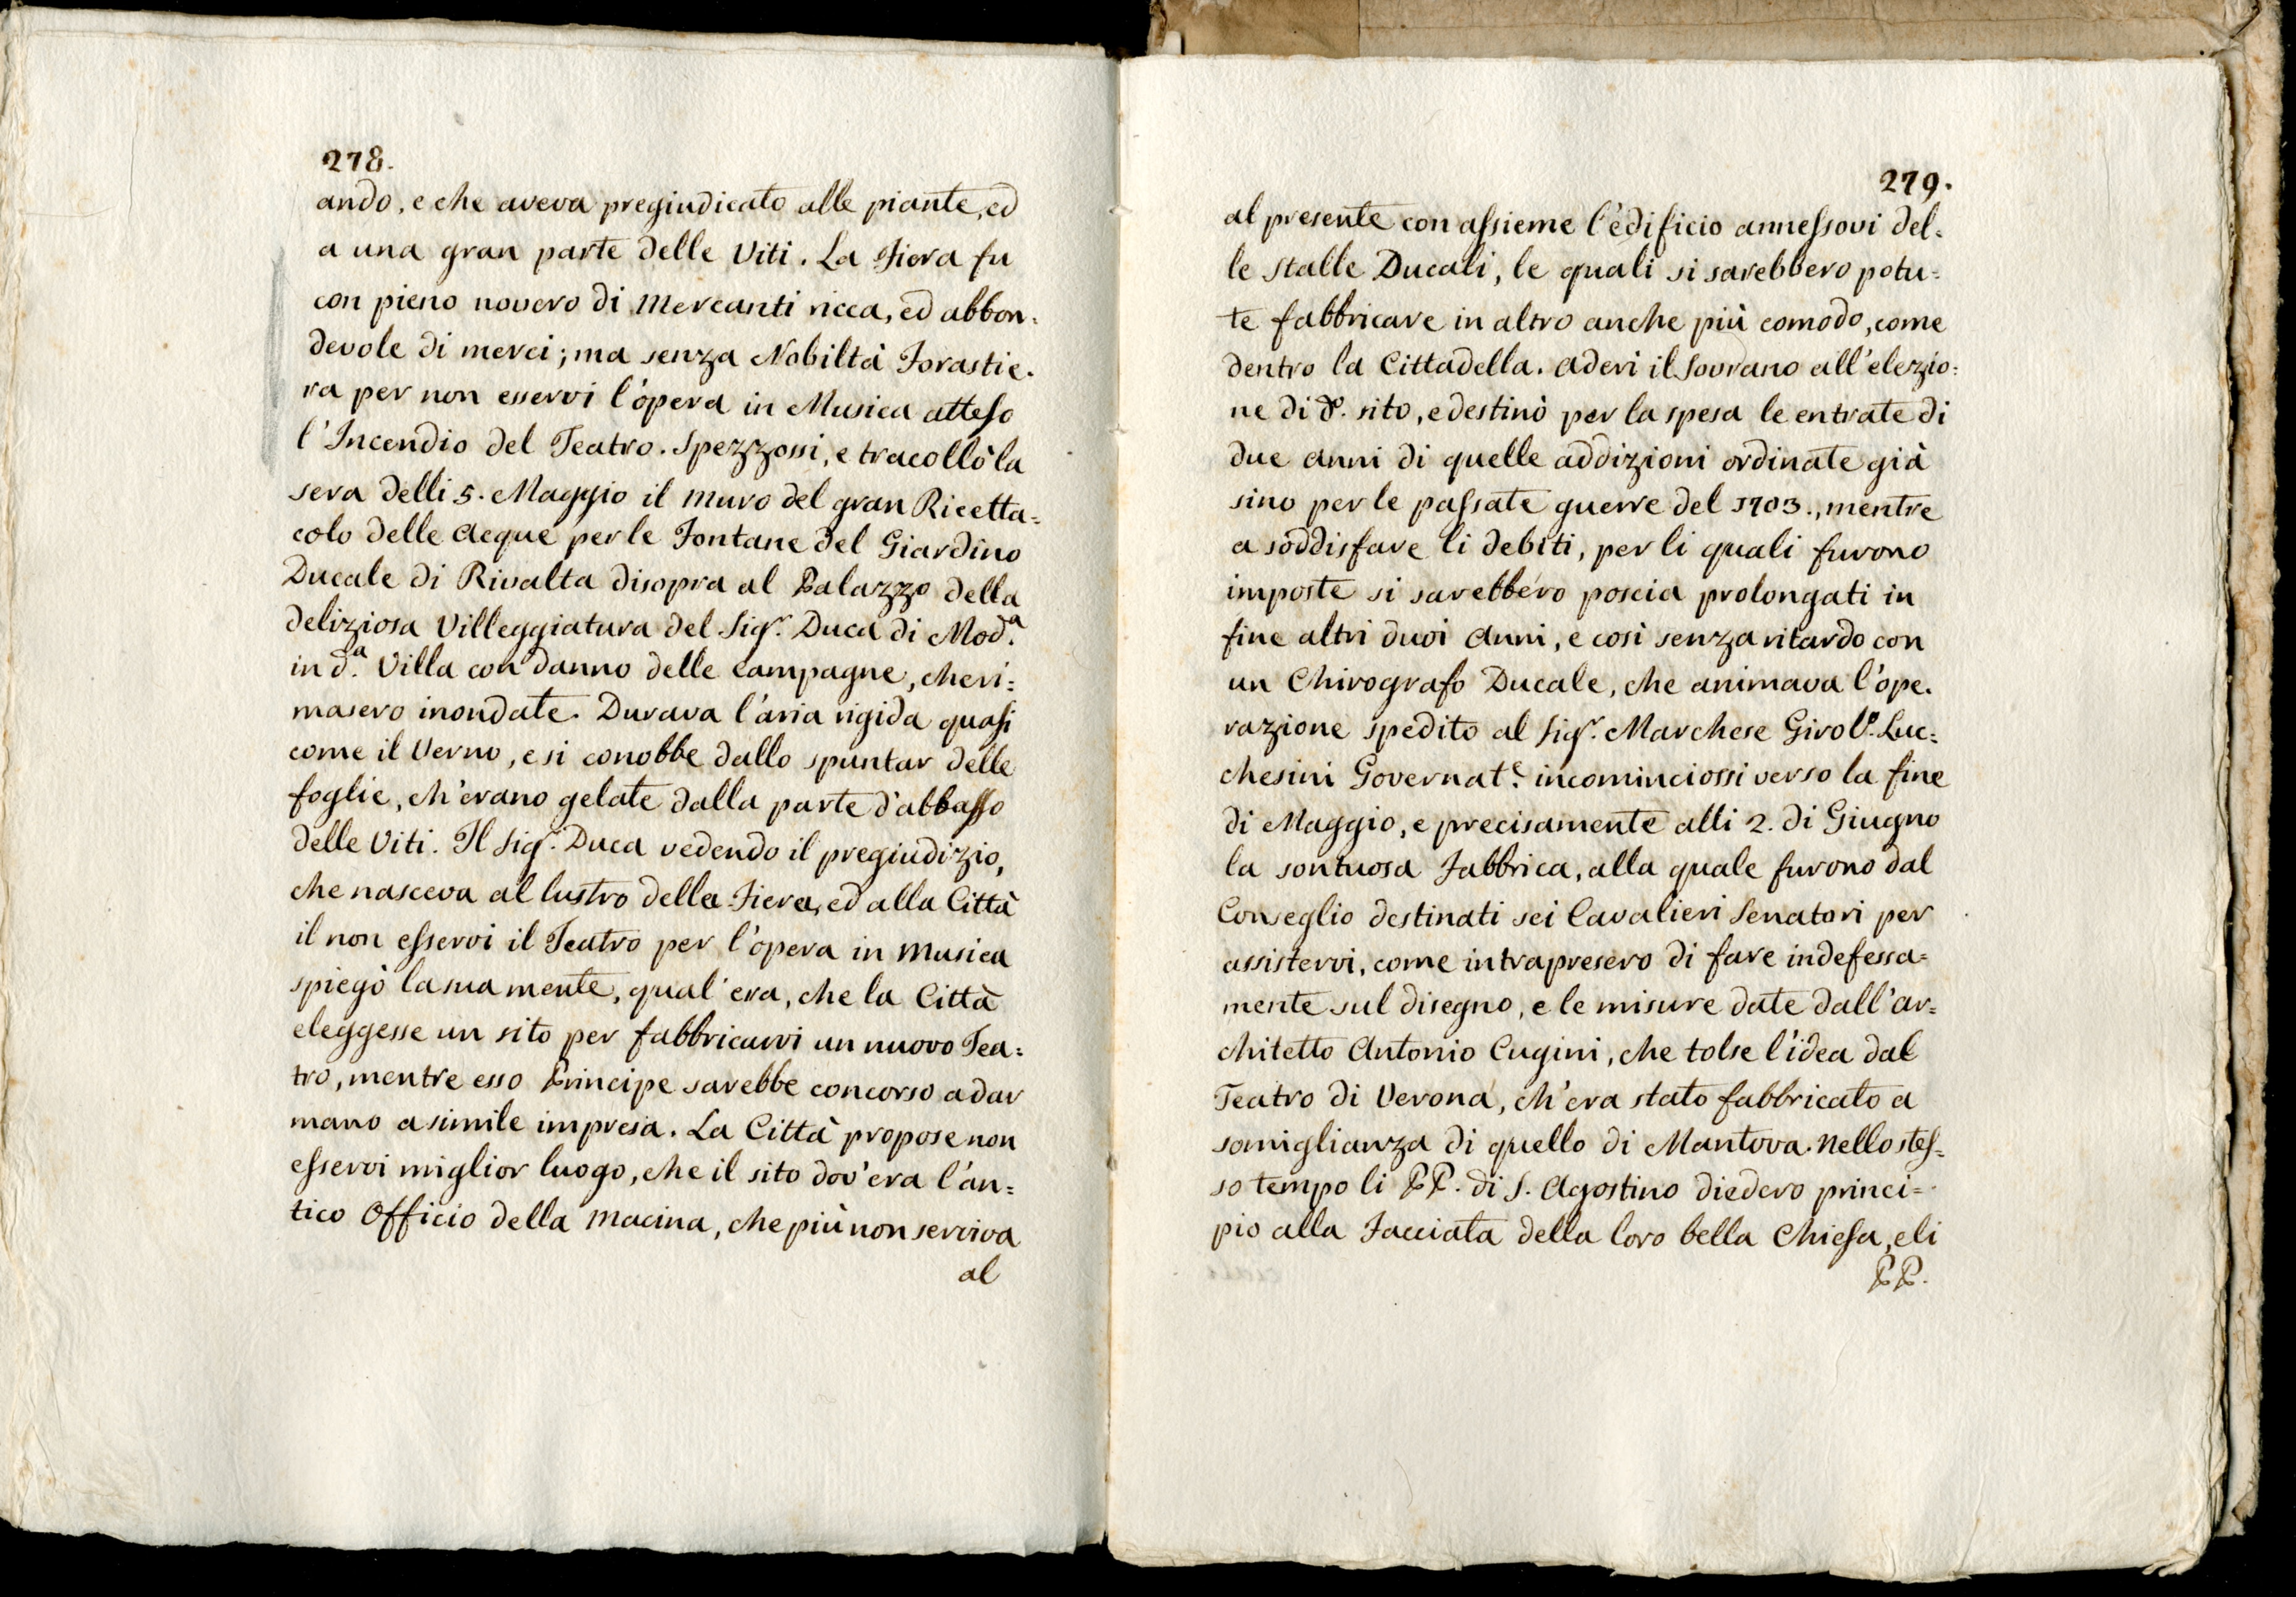 278.
ando, e che aveva pregiudicato alle piante, ed
a una gran parte delle Viti. La Fiera fu
con pieno novero di Mercanti ricca, ed abbon=
devole di merci; ma senza Nobiltà Forastie=
ra per non esservi l'opera in Musica atteso
l'Incendio del Teatro. Spezzossi, e tracollò la
sera delli 5. Maggio il muro del gran Ricetta=
colo delle Acque per le Fontane del Giardino
Ducale di Rivalta disopra al Palazzo della
deliziosa Villeggiatura del Sigr. Duca di Mod.a
in d.a Villa con danno delle campagne, che ri=
masero inondate. Durava l'aria rigida quasi
come il Verno, e si conobbe dallo spuntar delle
foglie, ch'erano gelate dalla parte d'abbasso
delle Viti. Il Sigr. Duca vedendo il pregiudizio,
che nasceva al lustro della Fiera, ed alla Città
il non esservi il Teatro per l'opera in musica
spiegò la sua mente, qual'era, che la Città
eleggesse un sito per fabbricarvi un nuovo Tea=
tro, mentre esso Principe sarebbe concorso a dar
mano a simile impresa. La Città propose non
esservi miglior luogo, che il sito dov'era l'an=
tico Officio della Macina, che più non serviva
al
279.
al presente con assieme l'edificio annessovi del=
le stalle Ducali, le quali si sarebbero potu=
te fabbricare in altro anche più comodo, come
dentro la Cittadella. Aderi il Sovrano all'elezio=
ne di d.o sito, e destinò per la spesa le entrate di
due anni di quelle addizioni ordinate già
sino per le passate guerre del 1703., mentre
a soddisfare li debiti, per li quali furono
imposte si sarebbero poscia prolongati in
fine altri duoi Anni, e così senza ritardo con
un Chirografo Ducale, che animava l'ope=
razione spedito al Sigr. Marchese Girol.o Luc=
chesini Governat.e incominciossi verso la fine
di Maggio, e precisamente alli 2. di Giugno
la sontuosa Fabbrica, alla quale furono dal
Conseglio destinati sei Cavalieri Senatori per
assistervi, come intrapresero di fare indefessa=
mente sul disegno, e le misure date dall'ar=
chitetto Antonio Cugini, che tolse l'idea dal
Teatro di Verona, ch'era stato fabbricato a
somiglianza di quello di Mantova. Nello stes=
so tempo li PP. di S. Agostino diedero princi=
pio alla Facciata della loro bella Chiesa, e li
PP.